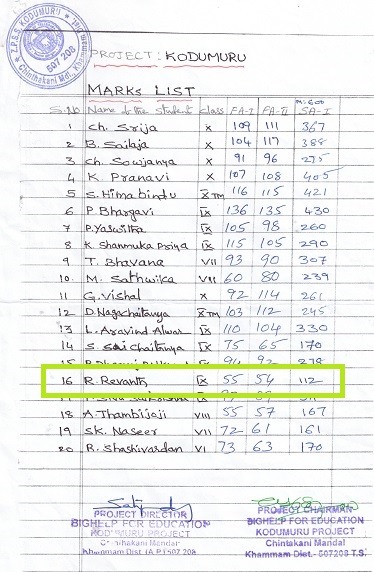 Z.P.S.S. KODUMURU
Chinthakani Mdl., Khammam
507 208
PROJECT: KODUMURU
MARKS LIST
M: 600
S.No Name of the student class FA-I FA-II SA-I
1 Ch. Srija X 109 111 367
2 B. Sailaja X 104 117 388
3 Ch. Sowjanya X 91 96 275
4 K. Pranavi X 107 108 405
5 S. Hima bindu X TM 116 115 421
6 P. Bhargavi IX 136 135 430
7 P. Yaswitha IX 105 98 260
8 K. Shanmuka Priya IX 115 105 290
9 T. Bhavana VII 93 90 307
10. M. Sathwika VII 60 80 239
11 G. Vishal X 92 114 261
12 D. Nagachaitanya X TM 103 112 245
13 L. Aravind Alwar IX 110 104 330
14 S. Sai chaitanya IX 75 65 170
15 94 92
16 R. Revanth IX 55 54 112
18 A. Thambijaji VIII 55 57 167
19 SK. Naseer VI 72 61 161
20 R. Shashivardan VI 73 63 170
PROJECT DIRECTOR
BIGHELP FOR EDUCATION
KODUMURU PROJECT
Chintakani Mandal
Khammam Dist. (A.P) 507 208
PROJECT CHAIRMAN
BIGHELP FOR EDUCATION
KODUMURU PROJECT
Chintakani Mandal
Khammam Dist.- 507208 T.S.